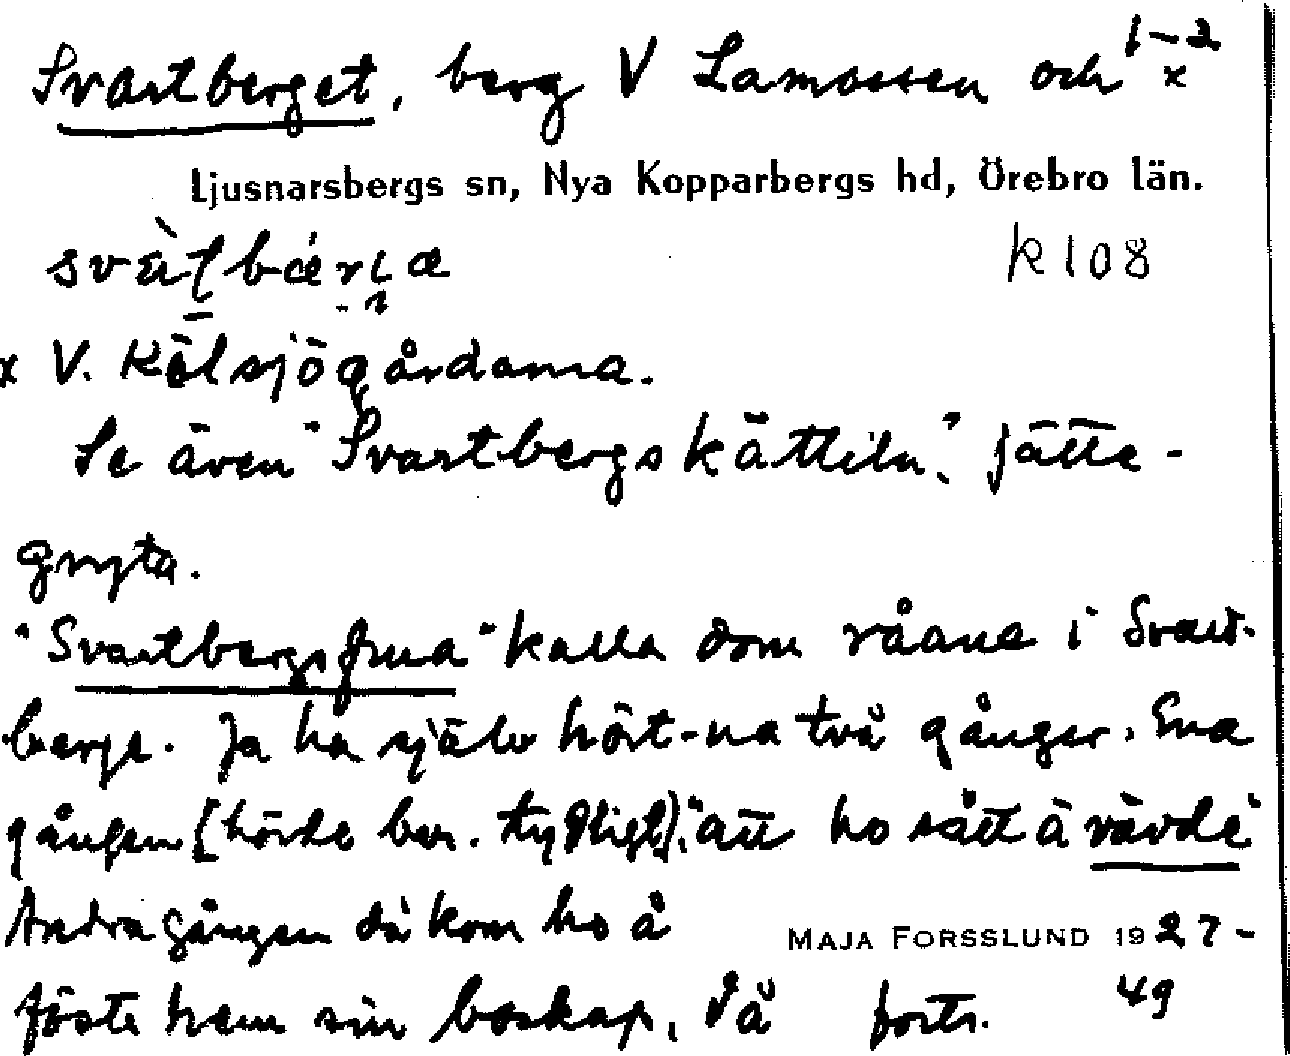 Svartberget, berg V Lamossen och x 1-2
Ljusnarsbergs sn, Nya Kopparbergs hd, Örebro län.
K 108
x V. Kölsjögårdarna.
Se även "Svartbergskätteln". Jätte-
gryta.
"Svartbergsfrua" kalla dom råane i Svart-
berge. Ja ha själv hört-na två gånger. Ena
gången [hörde ber. tydligt]: "att ho satt å vävde"
Andra gången då kom ho å
MAJA FORSSLUND 1927-
föste hem sin boskap, då forts. 49